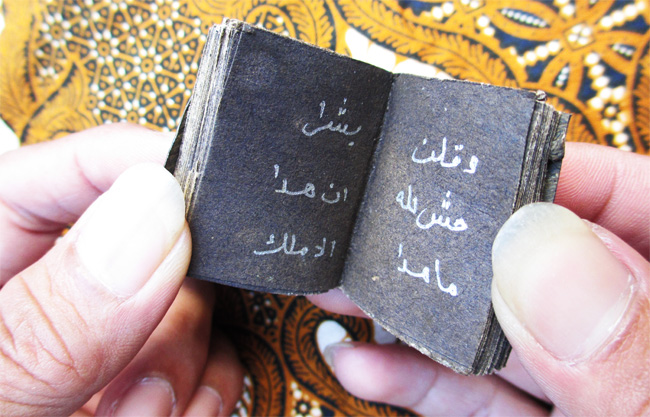 وقلن
حش لله
ما هدا
بشرا
ان هدا
الا ملك